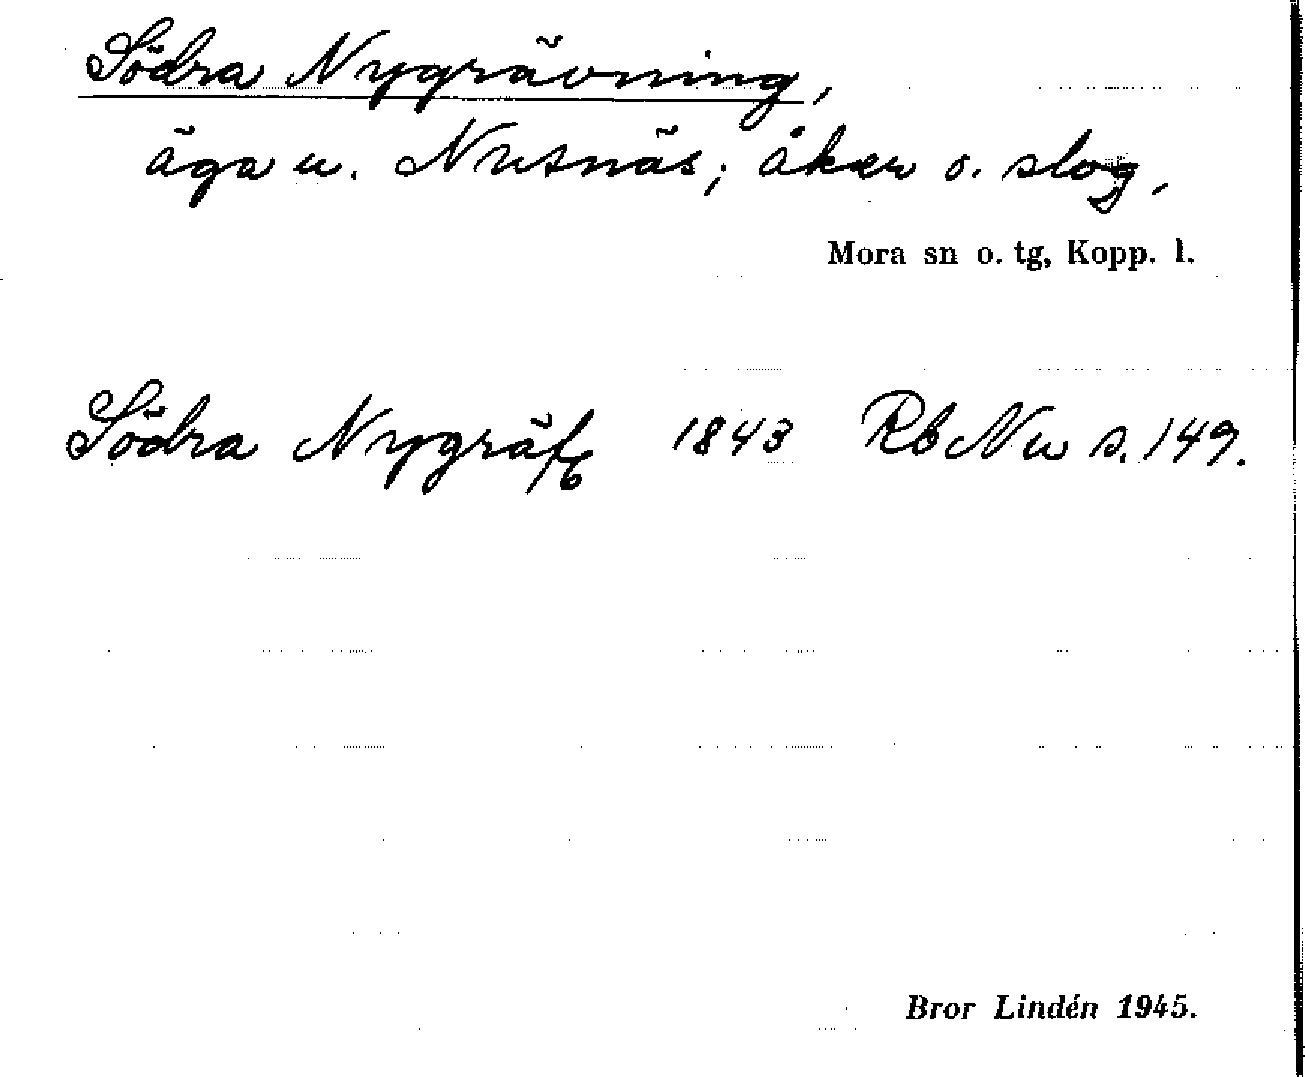 Södra Nygrävning,
äga u. Nusnäs; åker o. slog,
Mora sn o. tg, Kopp. l.
Södra Nygräf 1843 Rb Nu s. 149.
Bror Lindén 1945.